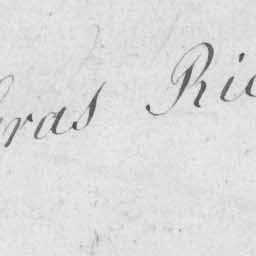 ras Ric